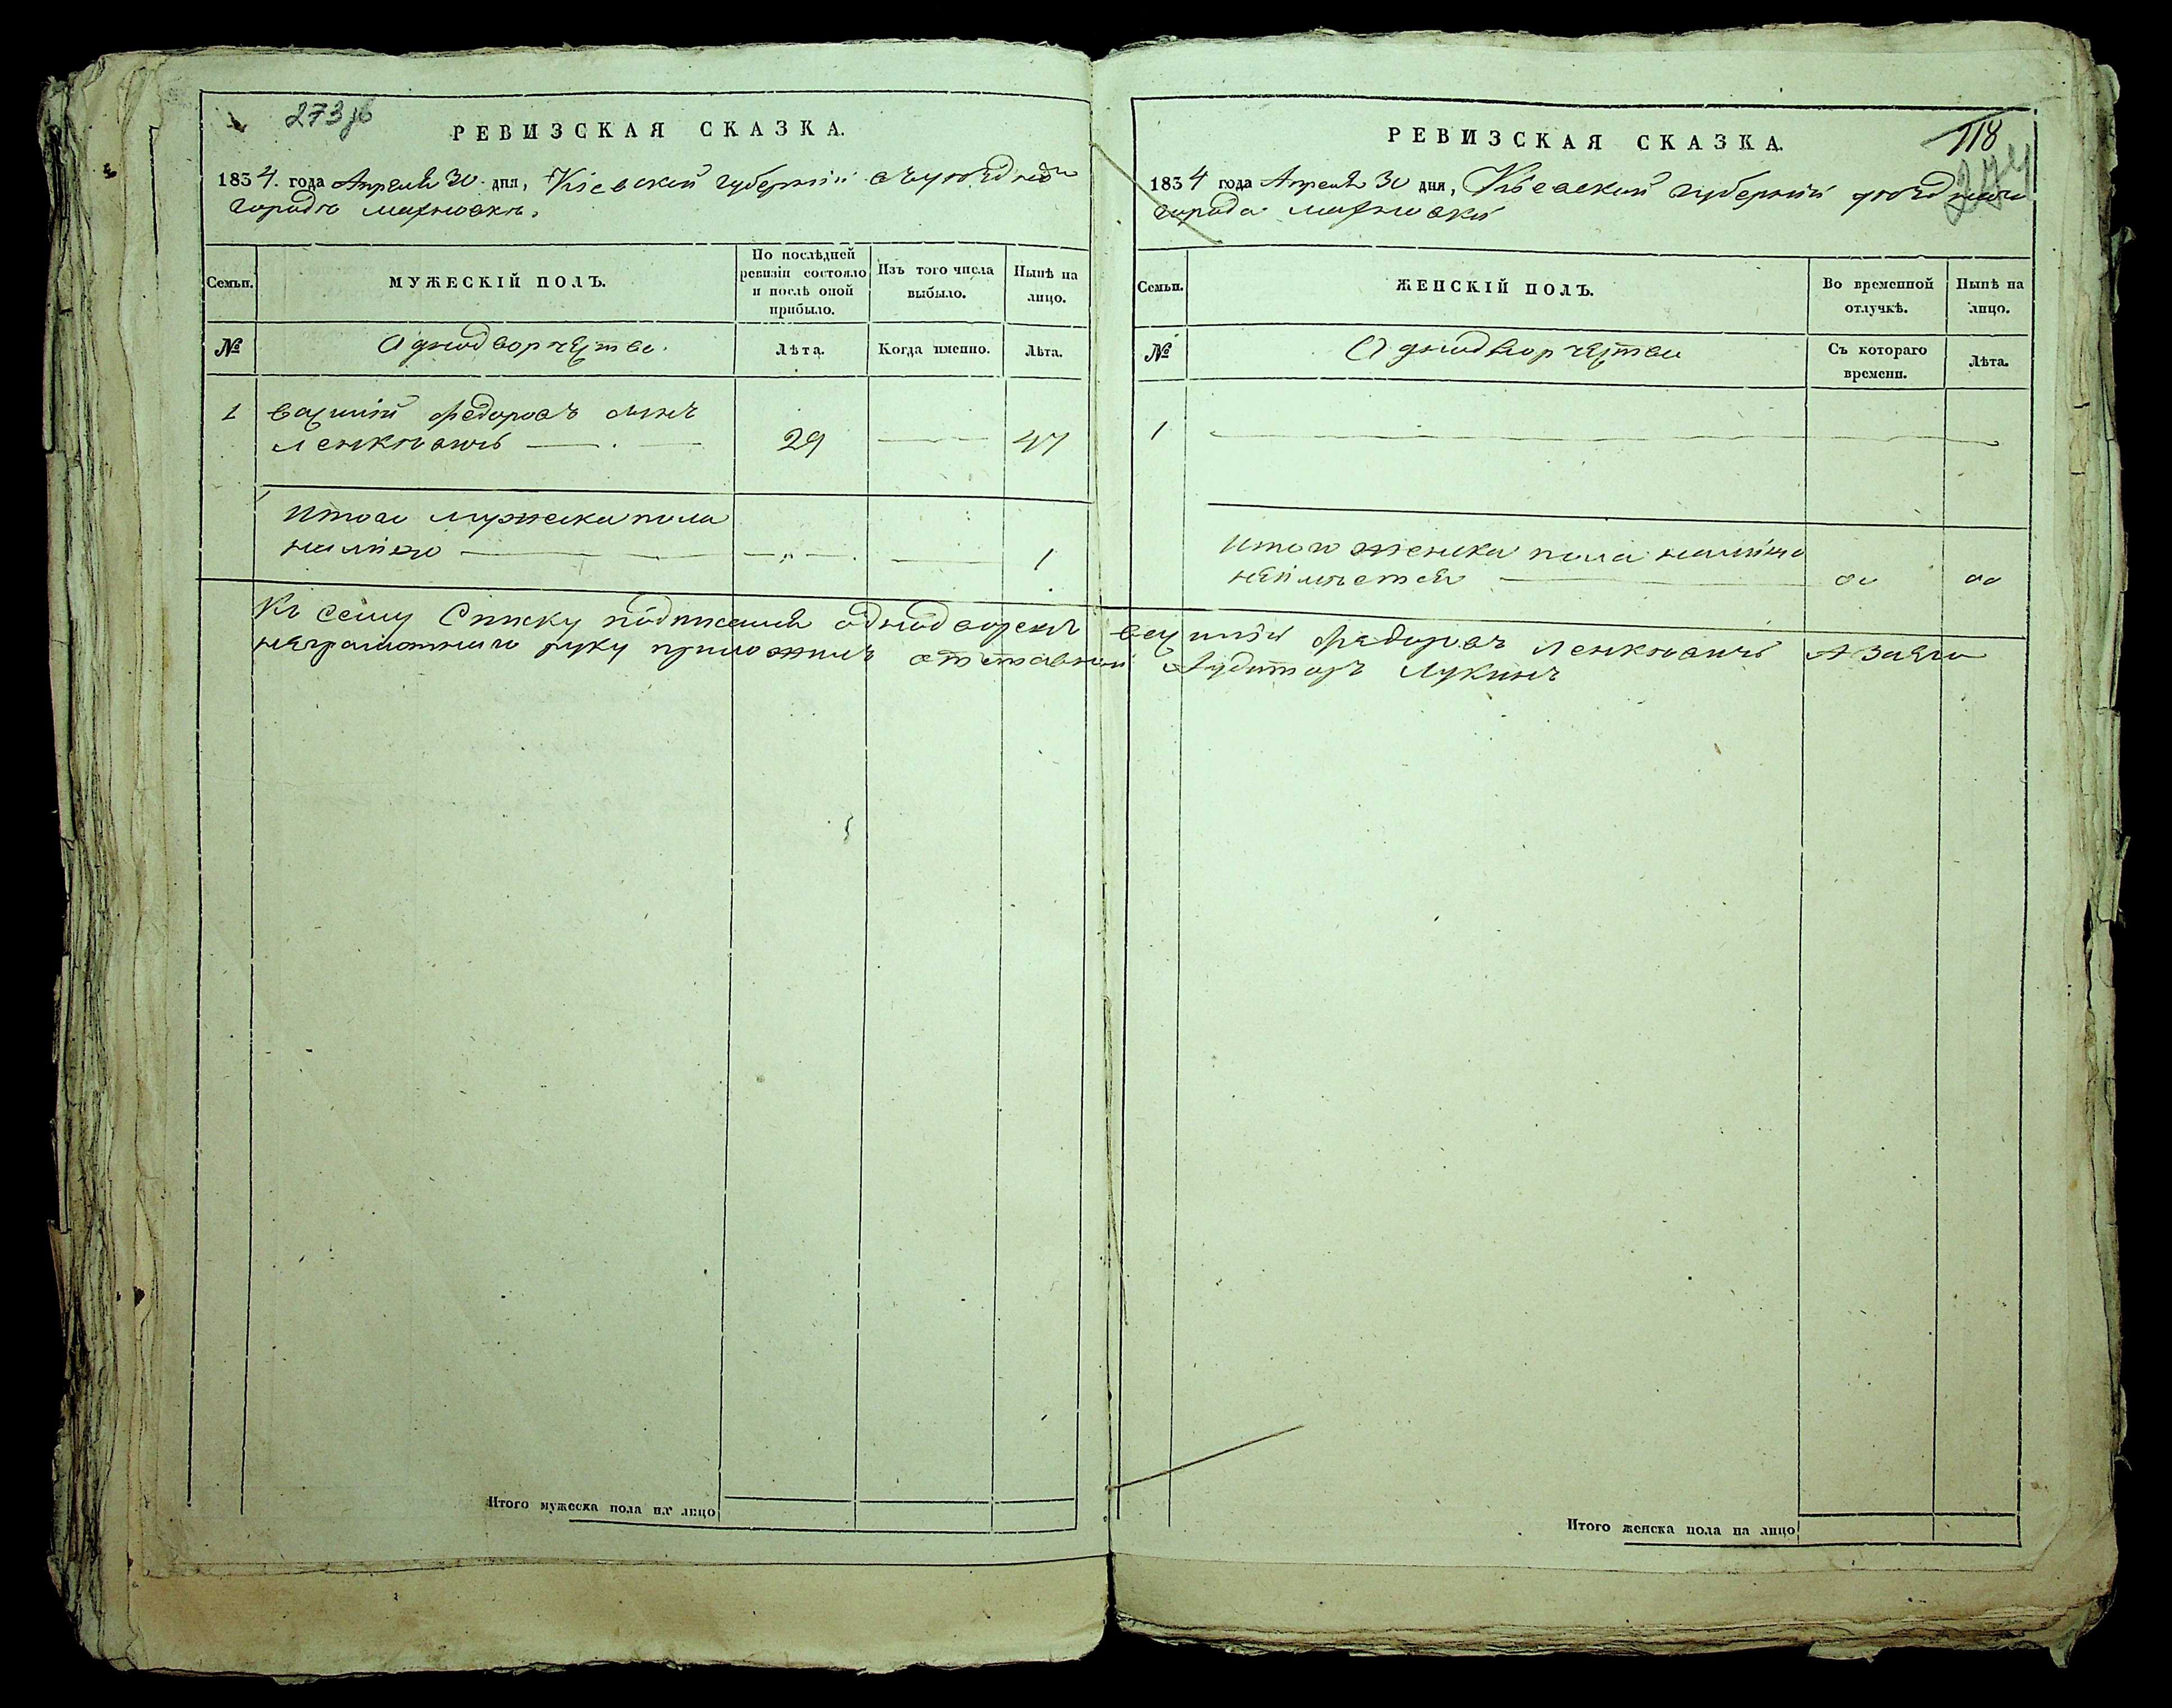 273 об
РЕВИЗСКАЯ СКАЗКА.
1834. года Апреля 30 дня, Кіевской губерніи въ уѣздномъ
городѣ Махновкѣ.
Семьи.
МУЖЕСКІЙ ПОЛЪ.
По послѣдней
ревизіи состояло
и послѣ оной
прибыло.
Изъ того числа
выбыло.
Нынѣ на
лицо.
№
Однодворчества.
Лѣта.
Когда именно.
Лѣта.
1 Василій Федоровъ сынъ
Ленкѣвичъ — 29 — 47
Итого мужеска пола
налицо — „ — — 1
РЕВИЗСКАЯ СКАЗКА.
118
274
1834 года Апреля 30 дня, Кіевской губерніи уѣзднаго
города Махновки
Семьи.
ЖЕНСКІЙ ПОЛЪ.
Во временной
отлучкѣ.
Нынѣ на
лицо.
№
Однодворчества
Съ котораго
времени.
Лѣта.
1 —
Итого женска пола налицо
неимѣется —
Къ сему Списку подписался однодворецъ Василій Федоровъ Ленкѣвичъ А Заего
неграмотнаго руку приложилъ отставной Аудиторъ Лукинъ
Итого мужеска пола на лицо
Итого женска пола на лицо